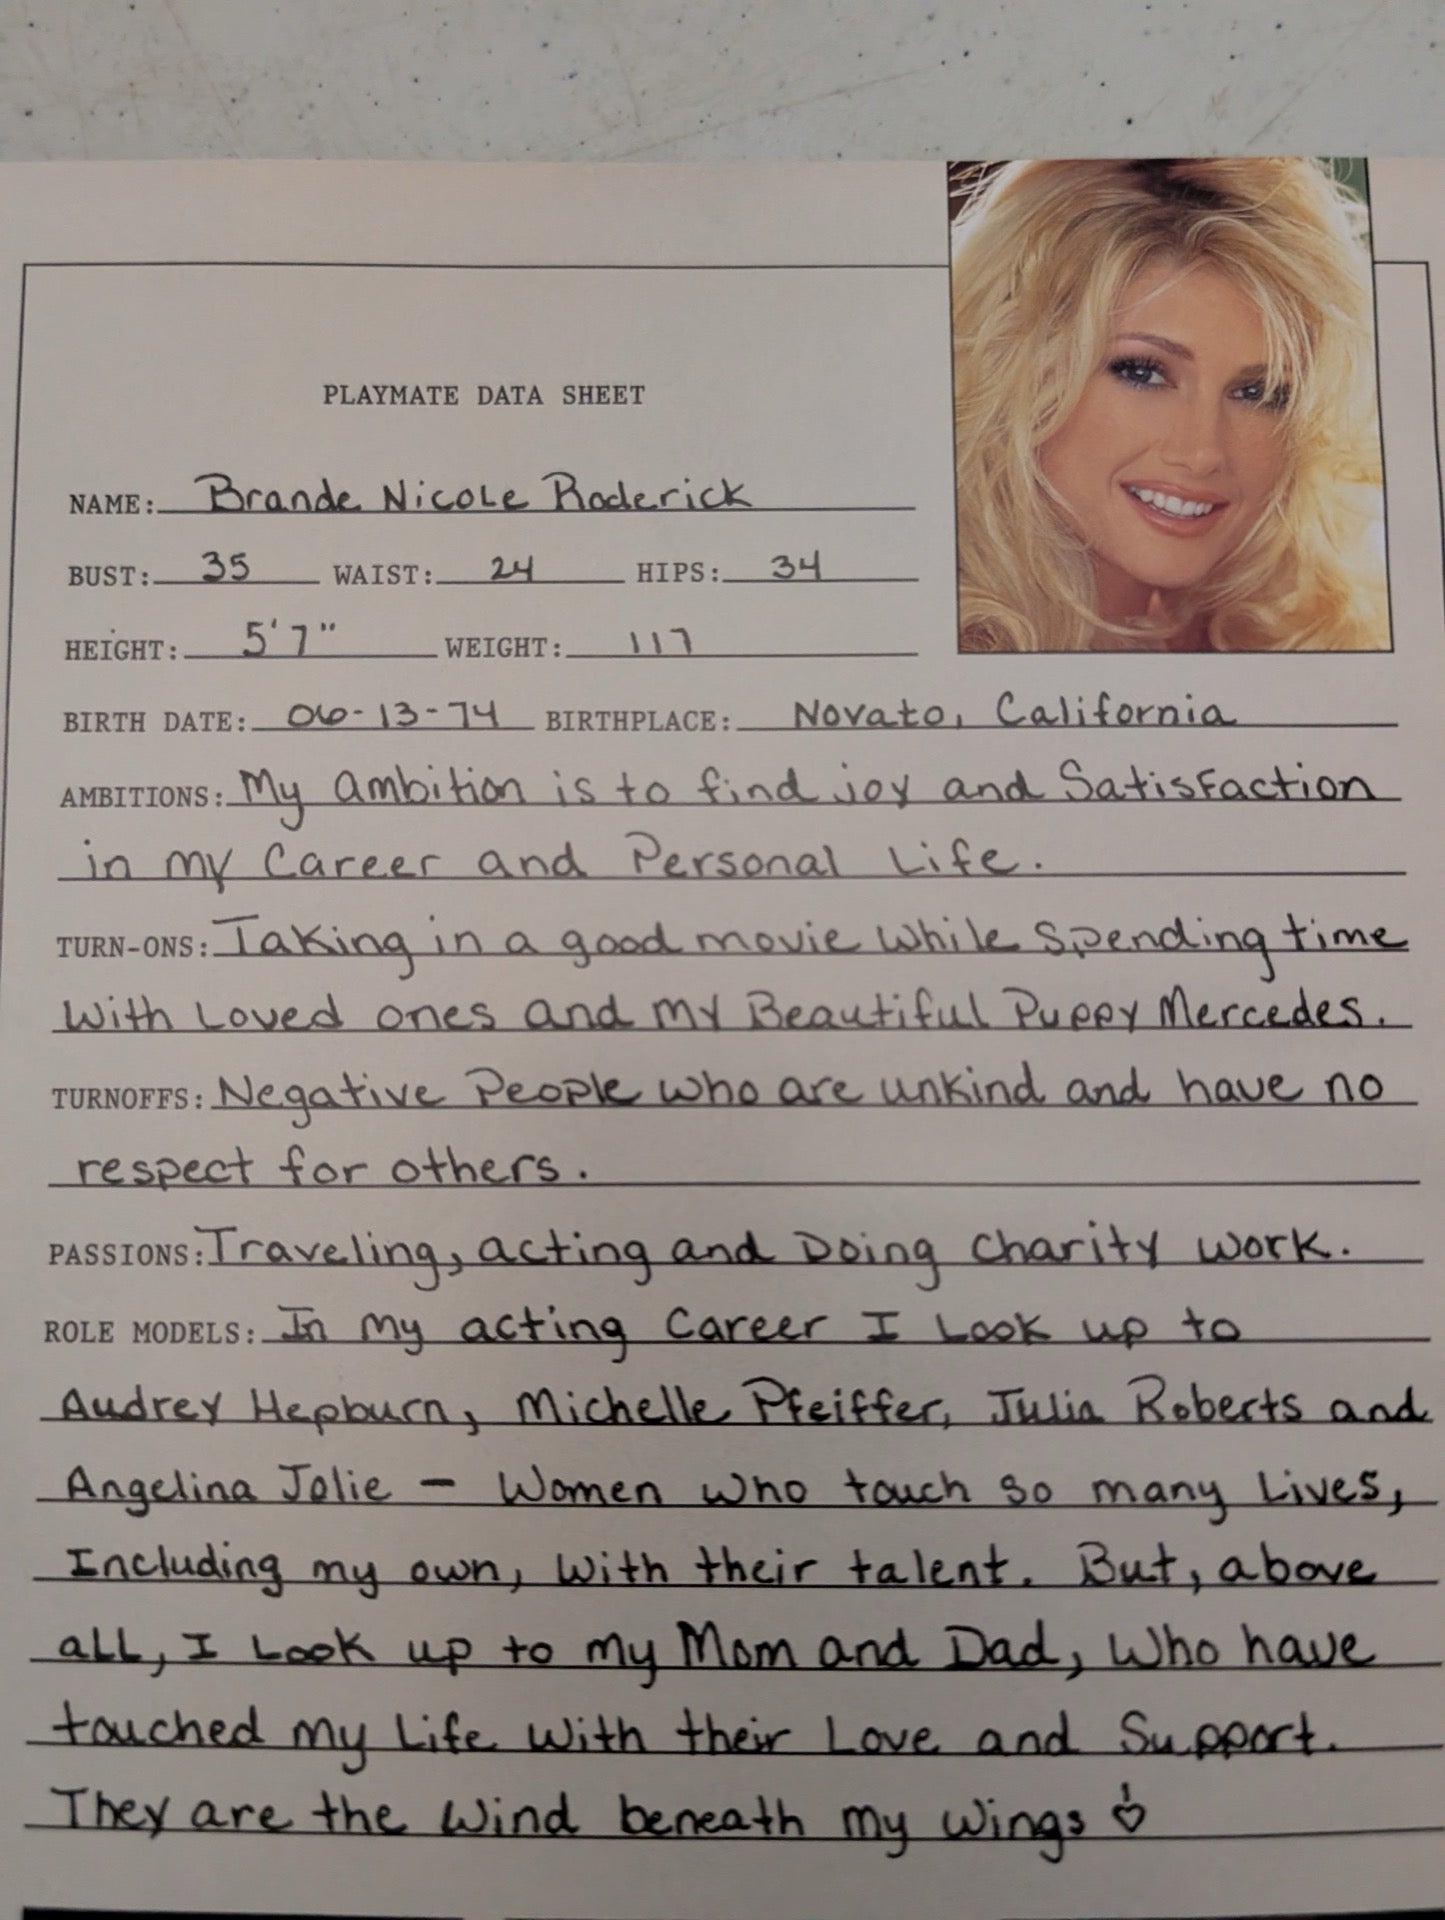 PLAYMATE DATA SHEET
NAME: Brande Nicole Roderick
BUST: 35 WAIST: 24 HIPS: 34
HEIGHT: 5'7" WEIGHT: 117
BIRTH DATE: 06-13-74 BIRTHPLACE: Novato, California
AMBITIONS: My ambition is to find joy and Satisfaction
in my Career and Personal Life.
TURN-ONS: Taking in a good movie while spending time
with Loved ones and my Beautiful Puppy Mercedes.
TURNOFFS: Negative People who are unkind and have no
respect for others.
PASSIONS: Traveling, acting and Doing charity work.
ROLE MODELS: In my acting Career I Look up to
Audrey Hepburn, Michelle Pfeiffer, Julia Roberts and
Angelina Jolie – Women who touch so many Lives,
Including my own, with their talent. But, above
all, I Look up to my Mom and Dad, who have
touched my Life with their Love and Support.
They are the wind beneath my wings